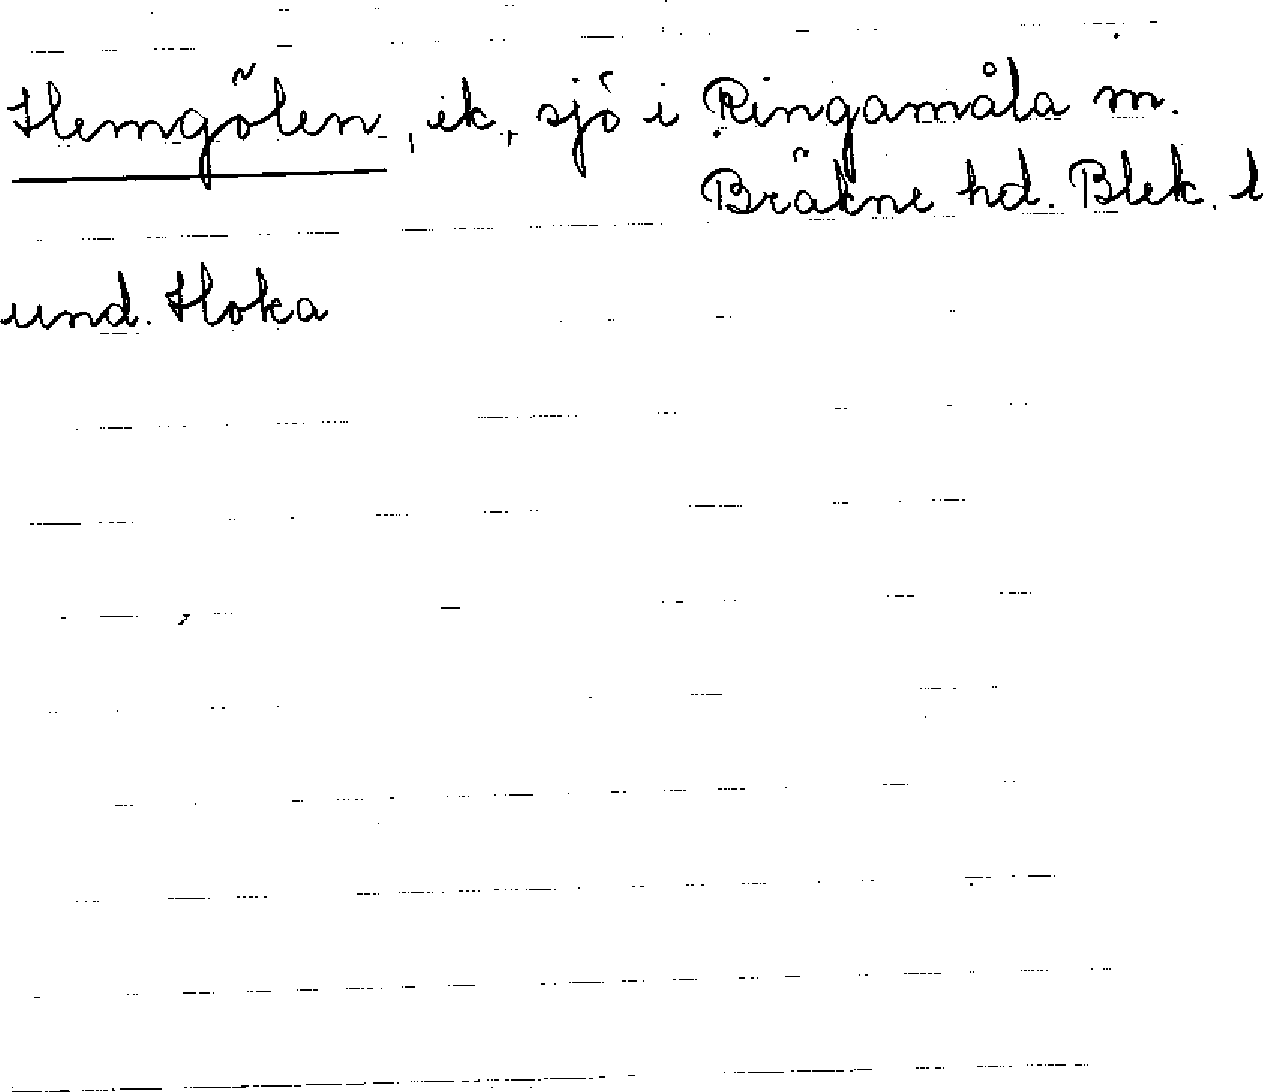 Hemgölen, ek, sjö i Ringamåla m.
Bräkne hd. Blek. l
und. Hoka